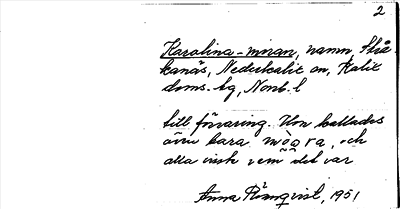 2
Karolina-moran, namn Strå-
kanäs, Nederkalix sn, Kalix
doms.-hg, Norrb. l
till förvaring. Hon kallades
även bara mòọra, och
alla visste vem det var
Anna Rönnqvist, 1951